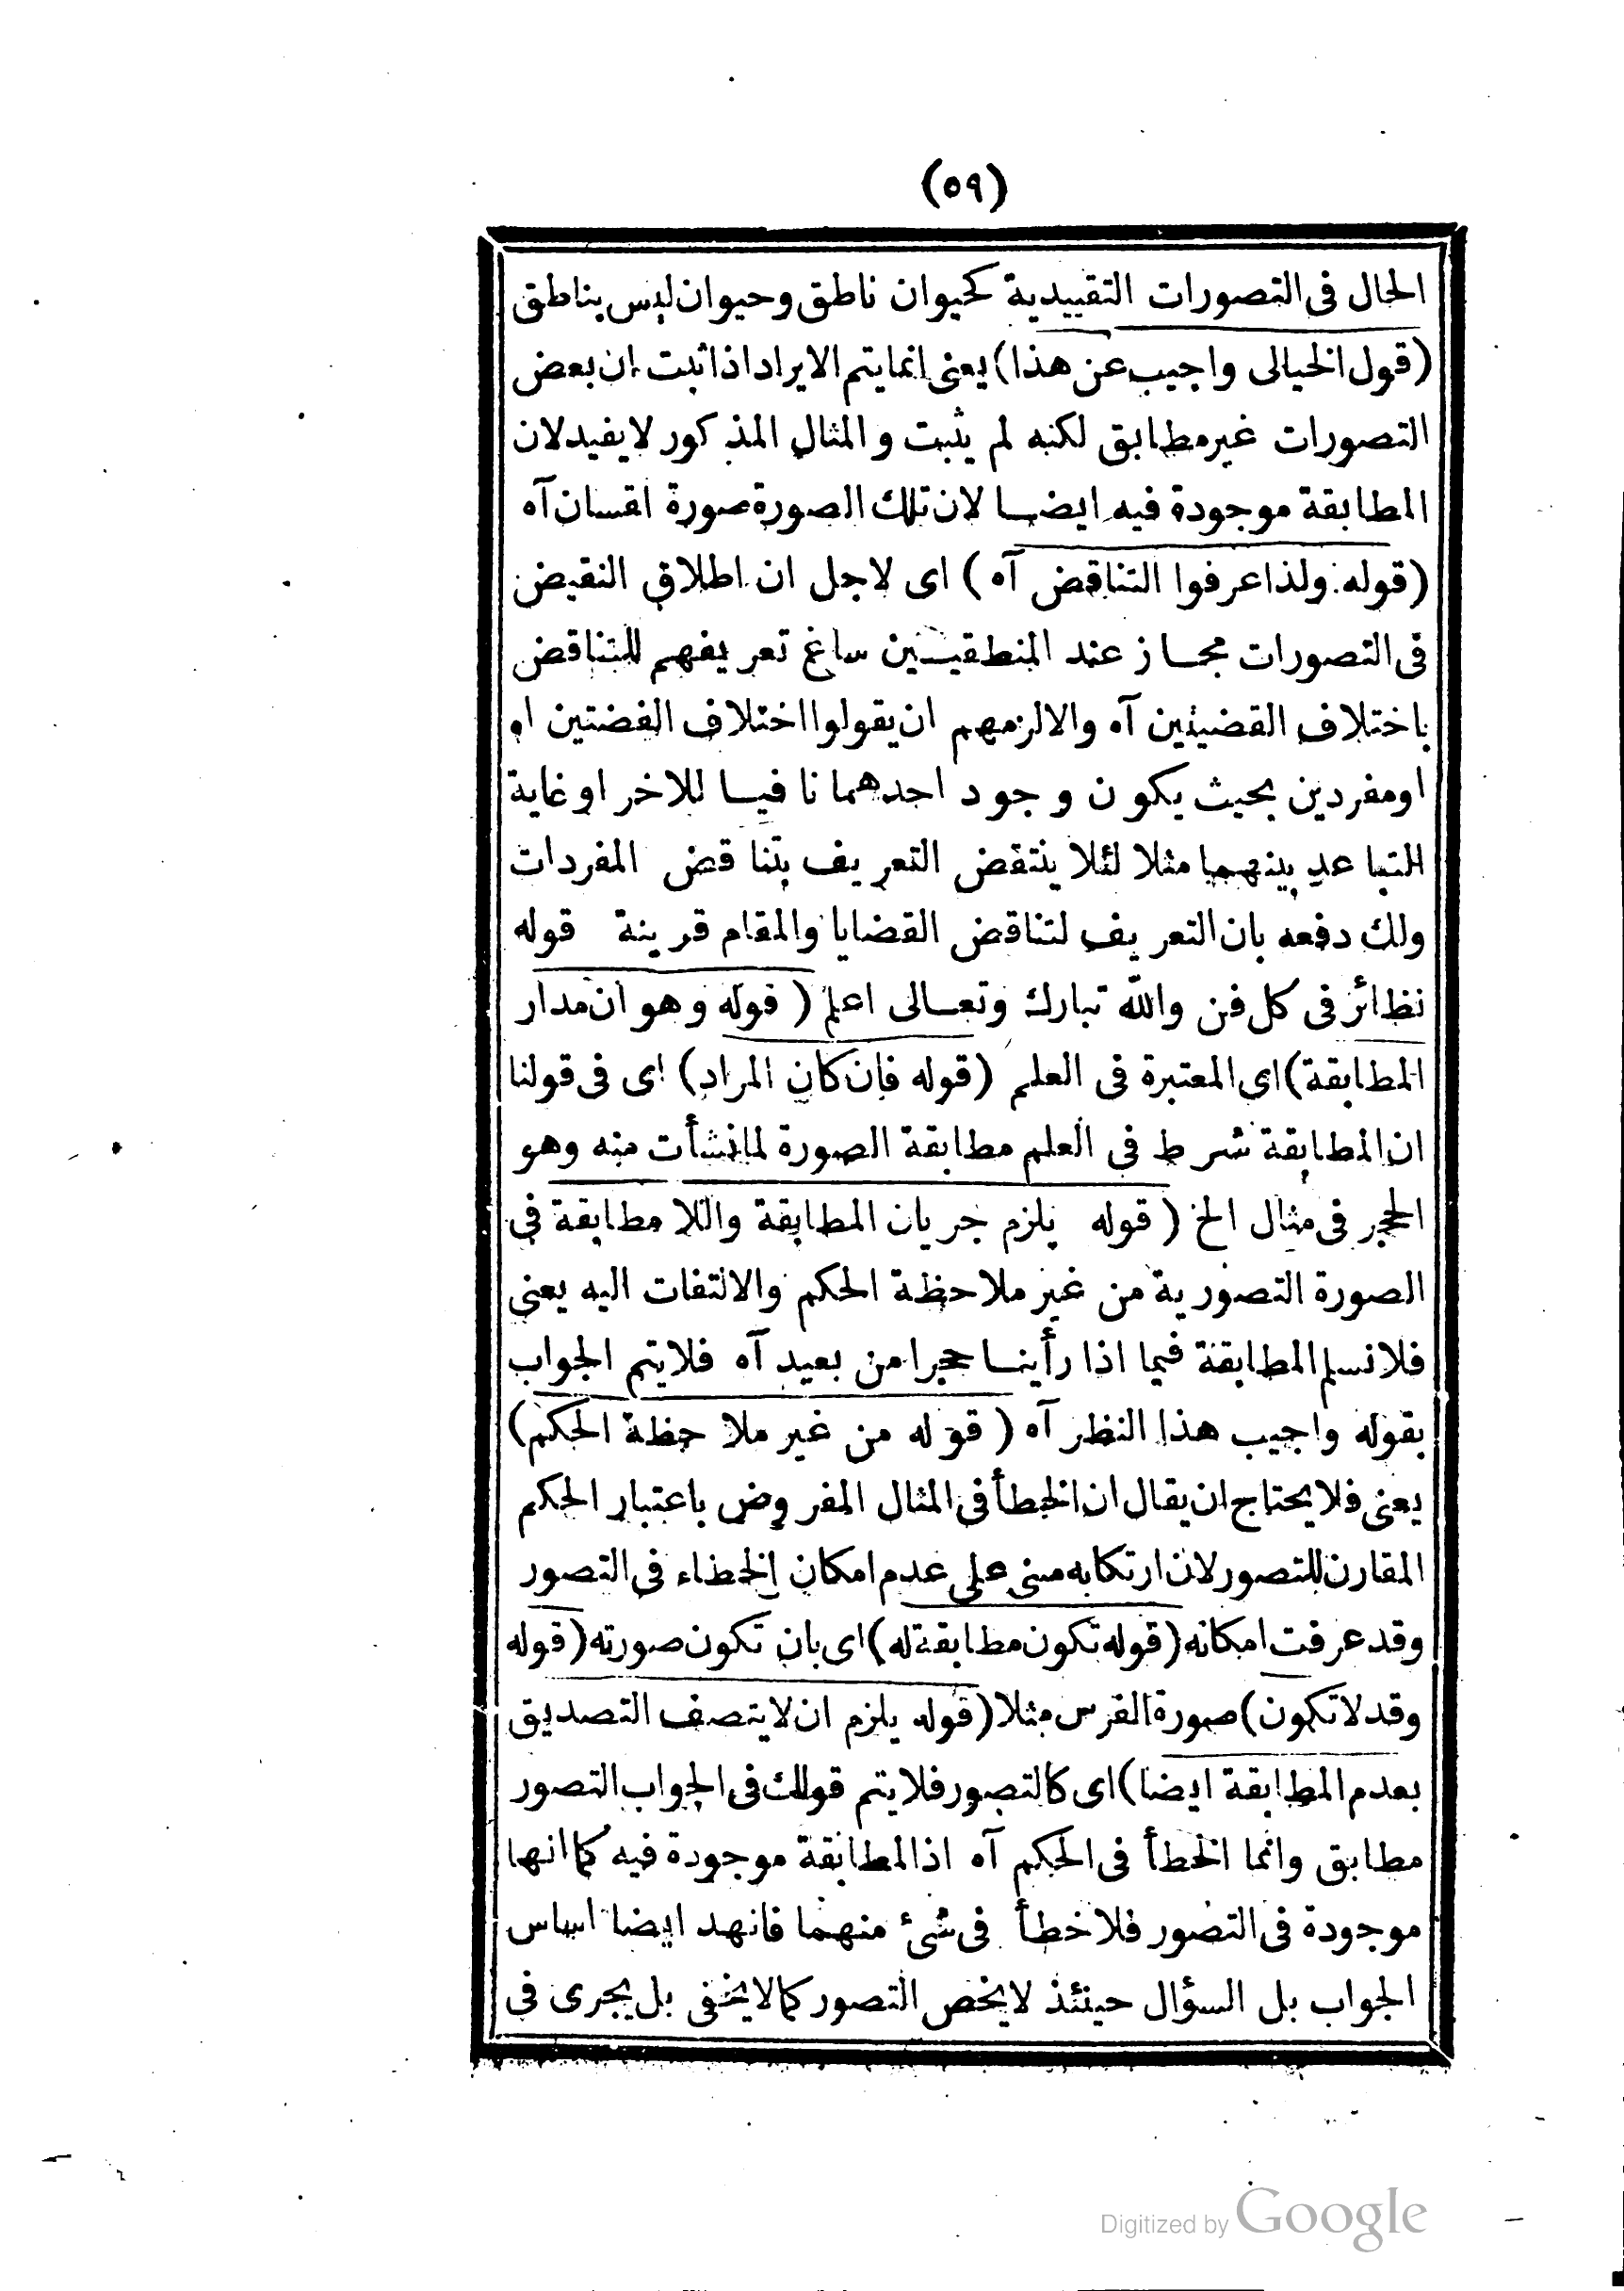 (٥٩)
الحال فى التصورات التقييدية كحيوان ناطق وحيوان ليس بناطق
(قول الخيالى واجيب عن هذا) يعنى انما يتم الايراد اذا ثبت ان بعض
التصورات غير مطابق لكنه لم يثبت والمثال المذكور لا يفيد لان
المطابقة موجودة فيه ايضا لان تلك الصورة صورة اقسان آه
(قوله ولذا عرفوا التناقض آه) اى لاجل ان اطلاق النقيض
فى التصورات مجاز عند المنطقيين ساغ تعريفهم للتناقض
باختلاف القضيتين آه والا لزمهم ان يقولوا اختلاف القضتين او
او مفردين بحيث يكون وجود احدهما نافيا للاخر او غاية
التباعد بينهما مثلا لئلا ينتقض التعريف بتناقض المفردات
ولك دفعه بان التعريف لتناقض القضايا والمقام قرينة قوله
نظائر فى كل فن والله تبارك وتعالى اعلم (قوله وهو ان مدار
المطابقة) اى المعتبرة فى العلم (قوله فان كان المراد) اى فى قولنا
ان المطابقة شرط فى العلم مطابقة الصورة لما نشأت منه وهو
الحجر فى مثال الخ (قوله يلزم جريان المطابقة واللا مطابقة فى
الصورة التصورية من غير ملاحظة الحكم والالتفات اليه يعنى
فلا نسلم المطابقة فيما اذا رأينا حجرا من بعيد آه فلا يتم الجواب
بقوله واجيب هذا النظر آه (قوله من غير ملاحظة الحكم)
يعنى فلا يحتاج ان يقال ان الخطأ فى المثال المفروض باعتبار الحكم
المقارن للتصور لان ارتكابه مبنى على عدم امكان الخطاء فى التصور
وقد عرفت امكانه (قوله تكون مطابقة له) اى بان تكون صورته (قوله
وقد لا تكون) صورة الفرس مثلا (قوله يلزم ان لا يتصف التصديق
بعدم المطابقة ايضا) اى كالتصور فلا يتم قولك فى الجواب التصور
مطابق وانما الخطأ فى الحكم آه اذ المطابقة موجودة فيه كما انها
موجودة فى التصور فلا خطأ فى شئ منهما فانهد ايضا اساس
الجواب بل السؤال حينئذ لا يخص التصور كما لا يخفى بل يجرى فى
Digitized by Google